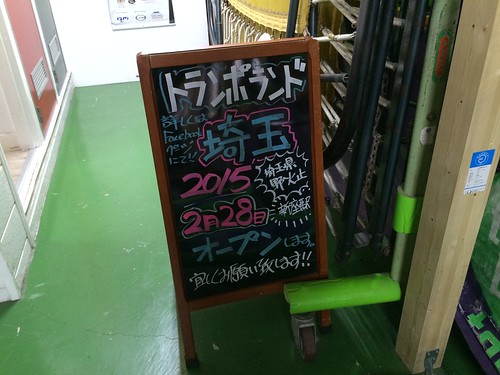 トランポランド
詳しくは
Facebook
ページ
にて!!
埼玉
2015
埼玉県
野火止
新座駅
2月28日
オープンします。
宜しくお願い致します!!